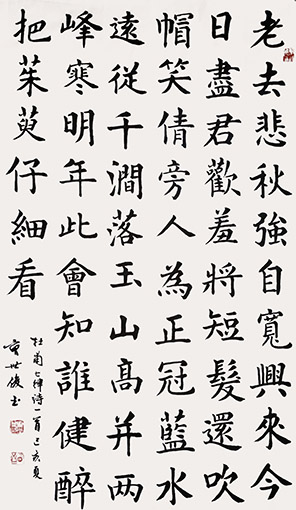 老去悲秋強自寬興來今
日盡君歡羞將短髮還吹
帽笑倩旁人為正冠藍水
遠從千澗落玉山高并两
峰寒明年此會知誰健醉
把茱萸仔細看
杜甫七律诗一首己亥夏
世俊书